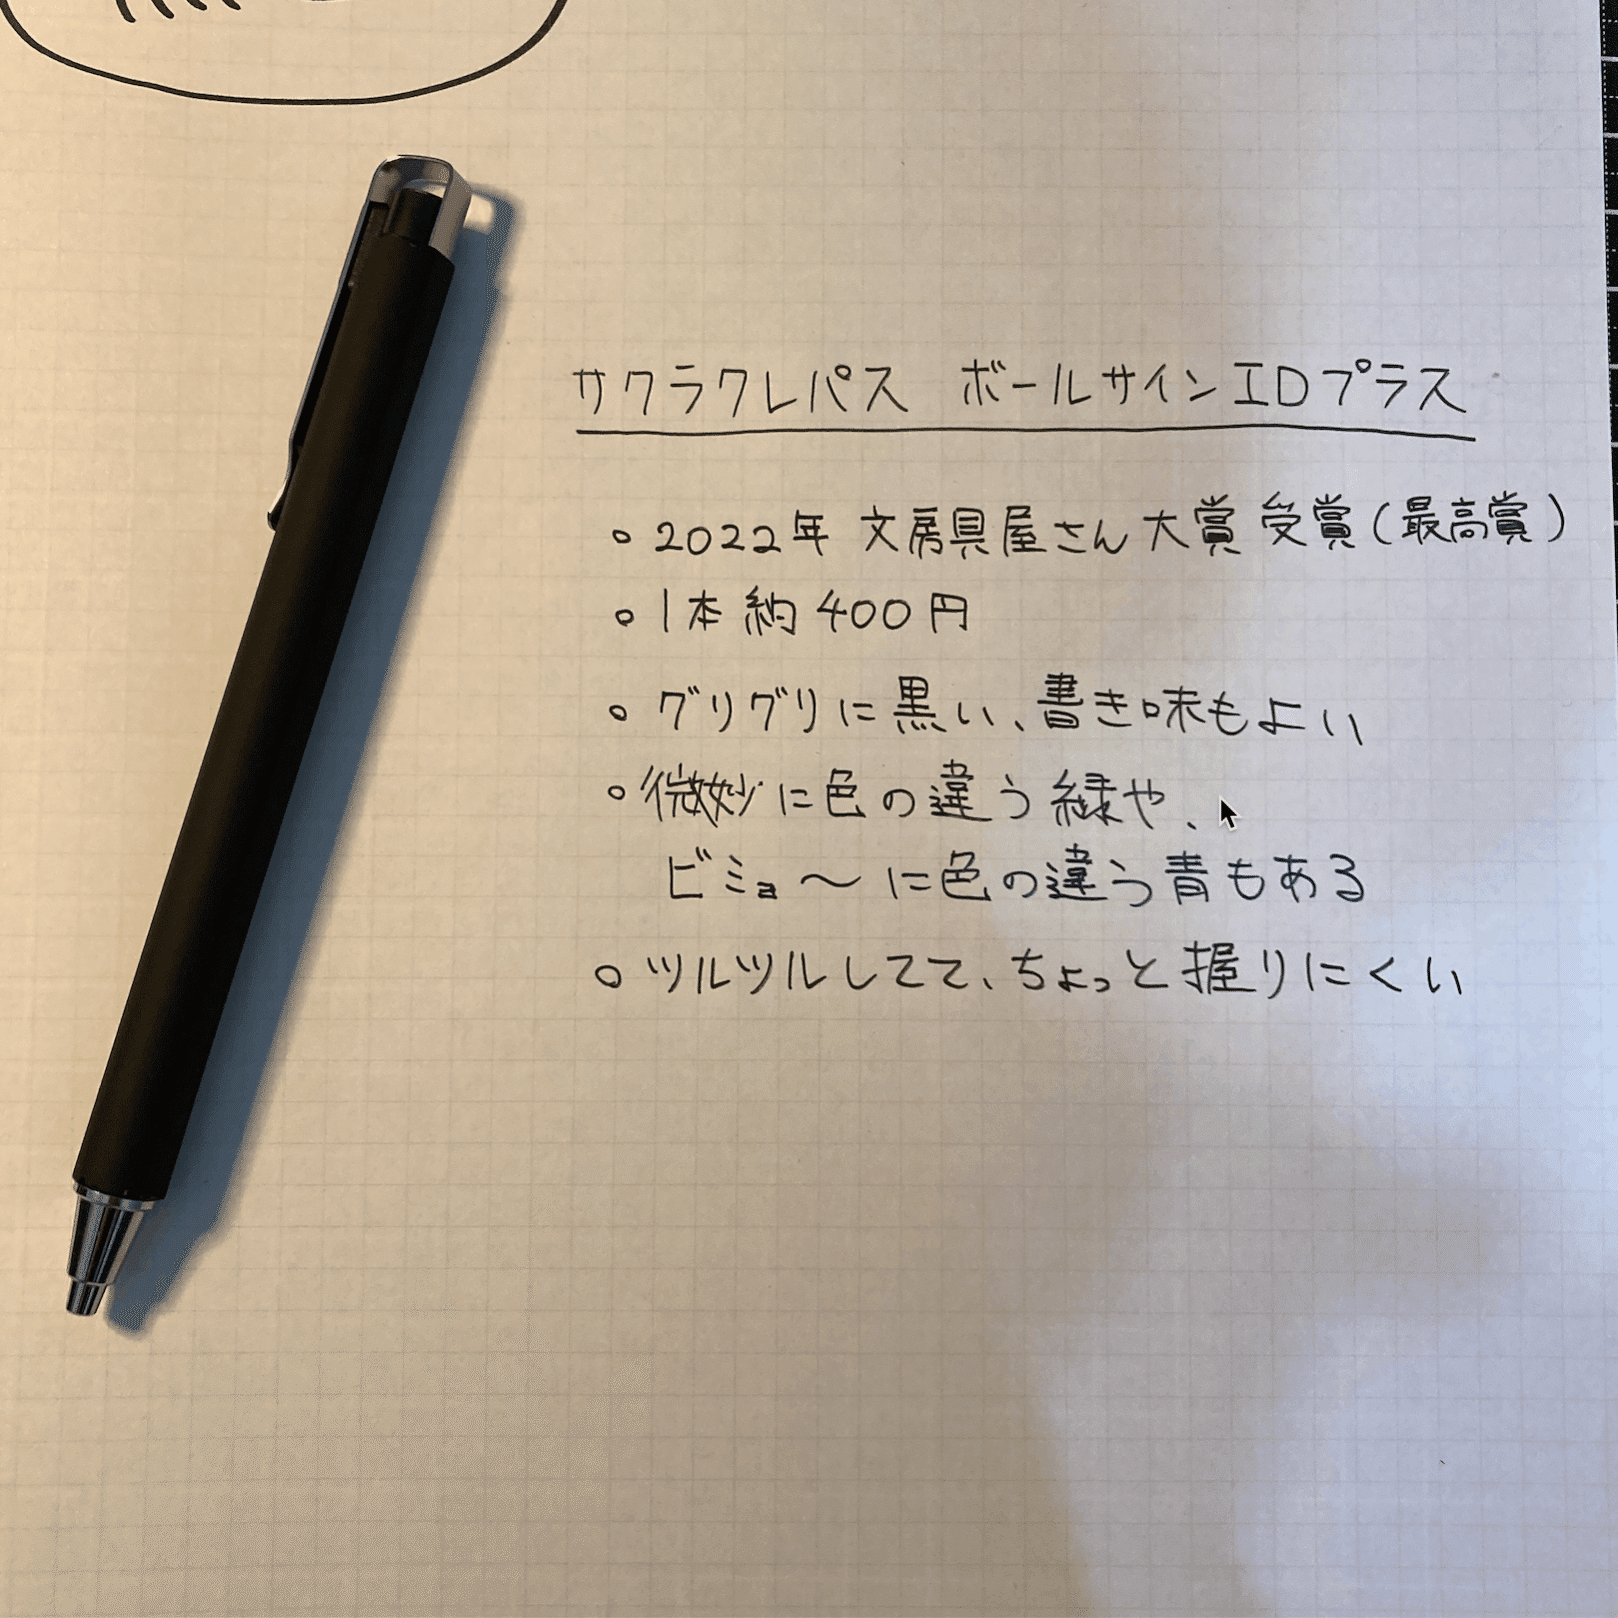 サクラクレパス ボールサインIDプラス
○ 2022年 文房具屋さん大賞 受賞(最高賞)
○ 1本 約400円
○ グリグリに黒い、書き味もよい
○ 微妙に色の違う緑や、
ビミョ〜に色の違う青もある
○ ツルツルしてて、ちょっと握りにくい